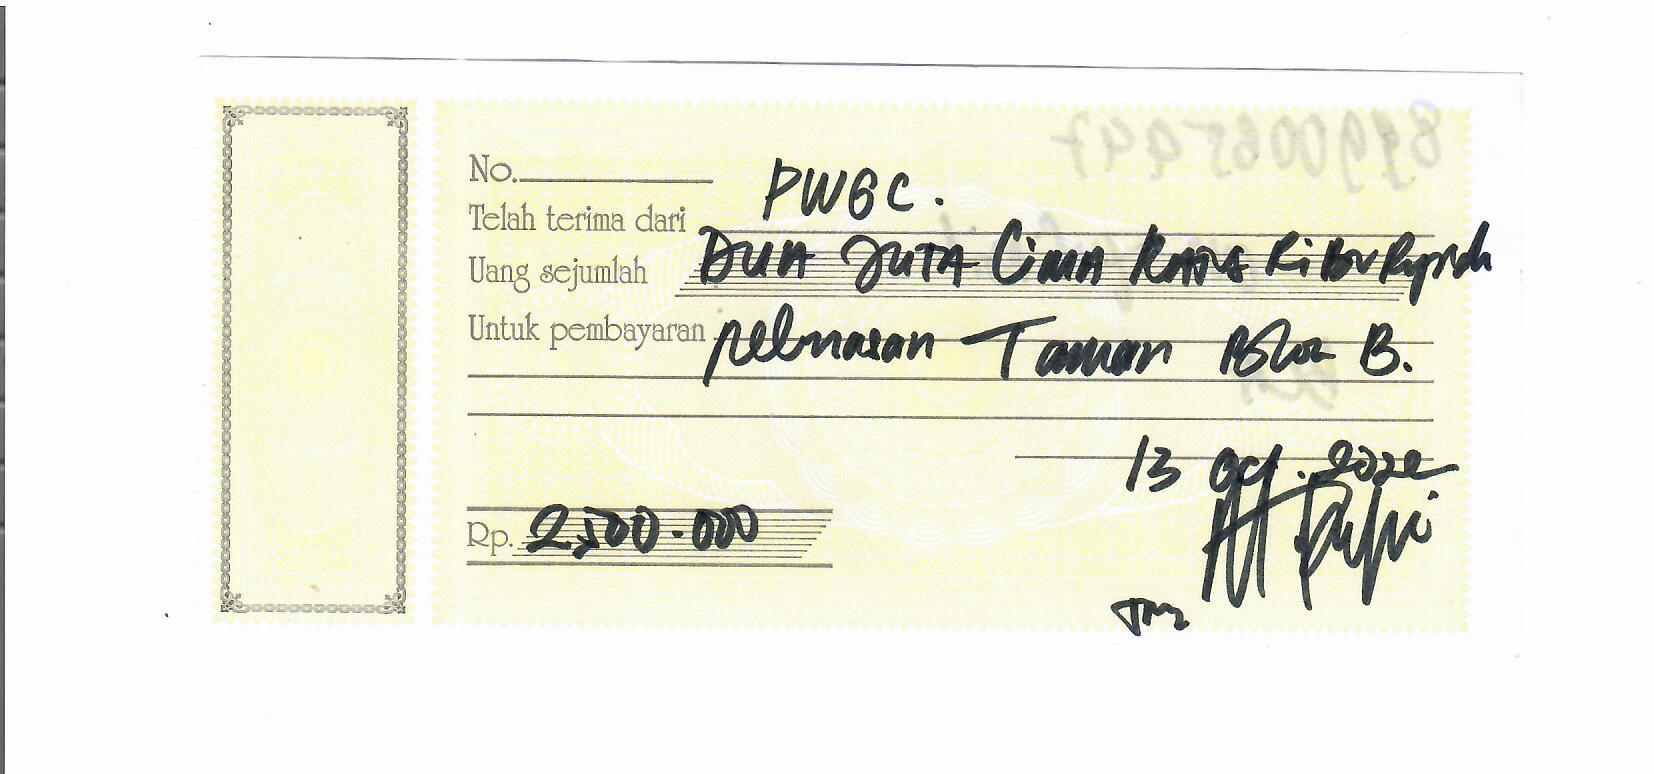 No.
Telah terima dari PWGC.
Uang sejumlah DUA JUTA Lima RATUS Ribu Rupiah
Untuk pembayaran pelunasan Taman Blok B.
13 Oct. 2022
Rp. 2,500.000